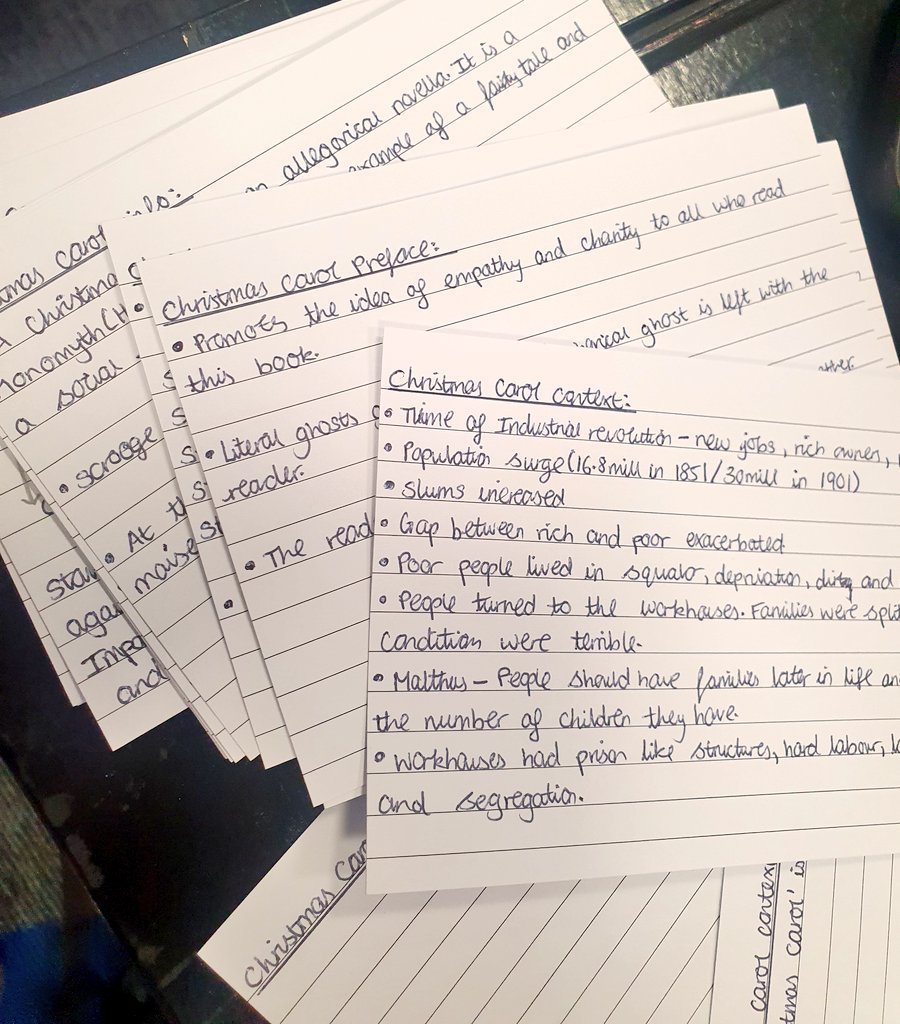 an allegorical novella. It is a
example of a fairy tale and
Christmas Carol
A Christmas
monomyth
a social
• Scrooge
• At
again
and
Christmas Carol Preface:
• Promots the idea of empathy and charity to all who read
this book.
• Literal ghosts
ghost is left with the
reader.
• The read
Christmas Carol context:
• Time of Industrial revolution - new jobs, rich owner,
• Population surge (16.8mill in 1851/30mill in 1901)
• Slums increased
• Gap between rich and poor exacerbated
• Poor people lived in squalor, depriation, dirty and
• People turned to the workhouses. Families were split
condition were terrible.
• Malthus - People should have families later in life an
the number of children they have.
• Workhouses had prison like structures, hard labour,
and segregation.
Christmas Car
Carol context
tmas Carol' is